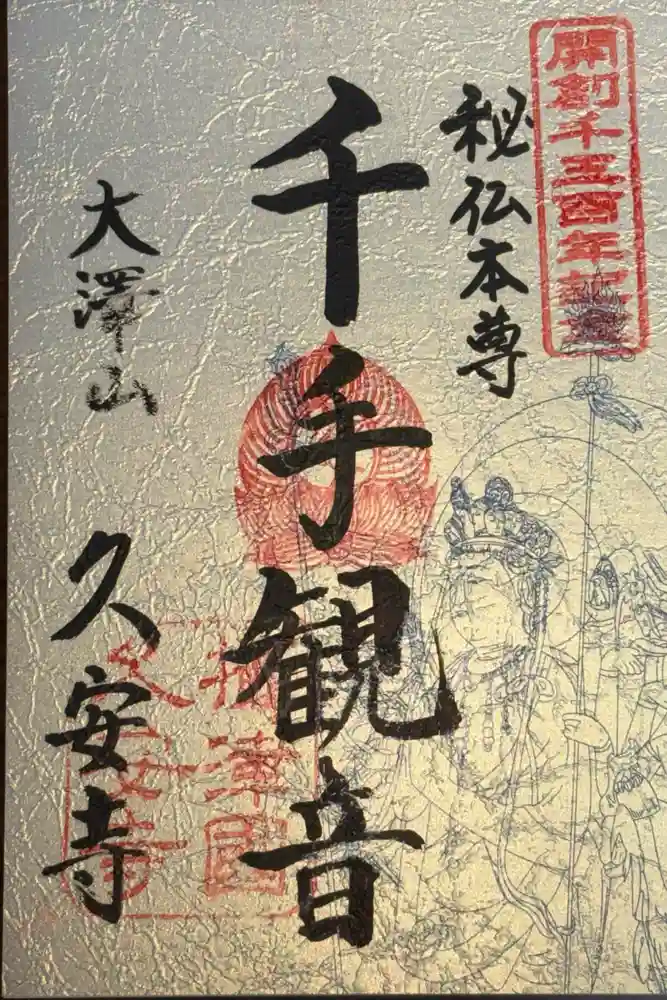 開創千三百年記念
秘仏本尊
千手観音
大澤山
久安寺
摂津国
久安寺